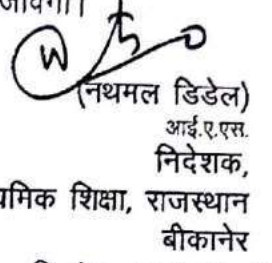 (नथमल डिडेल)
आई.ए.एस.
निदेशक,
शिक्षा, राजस्थान
बीकानेर